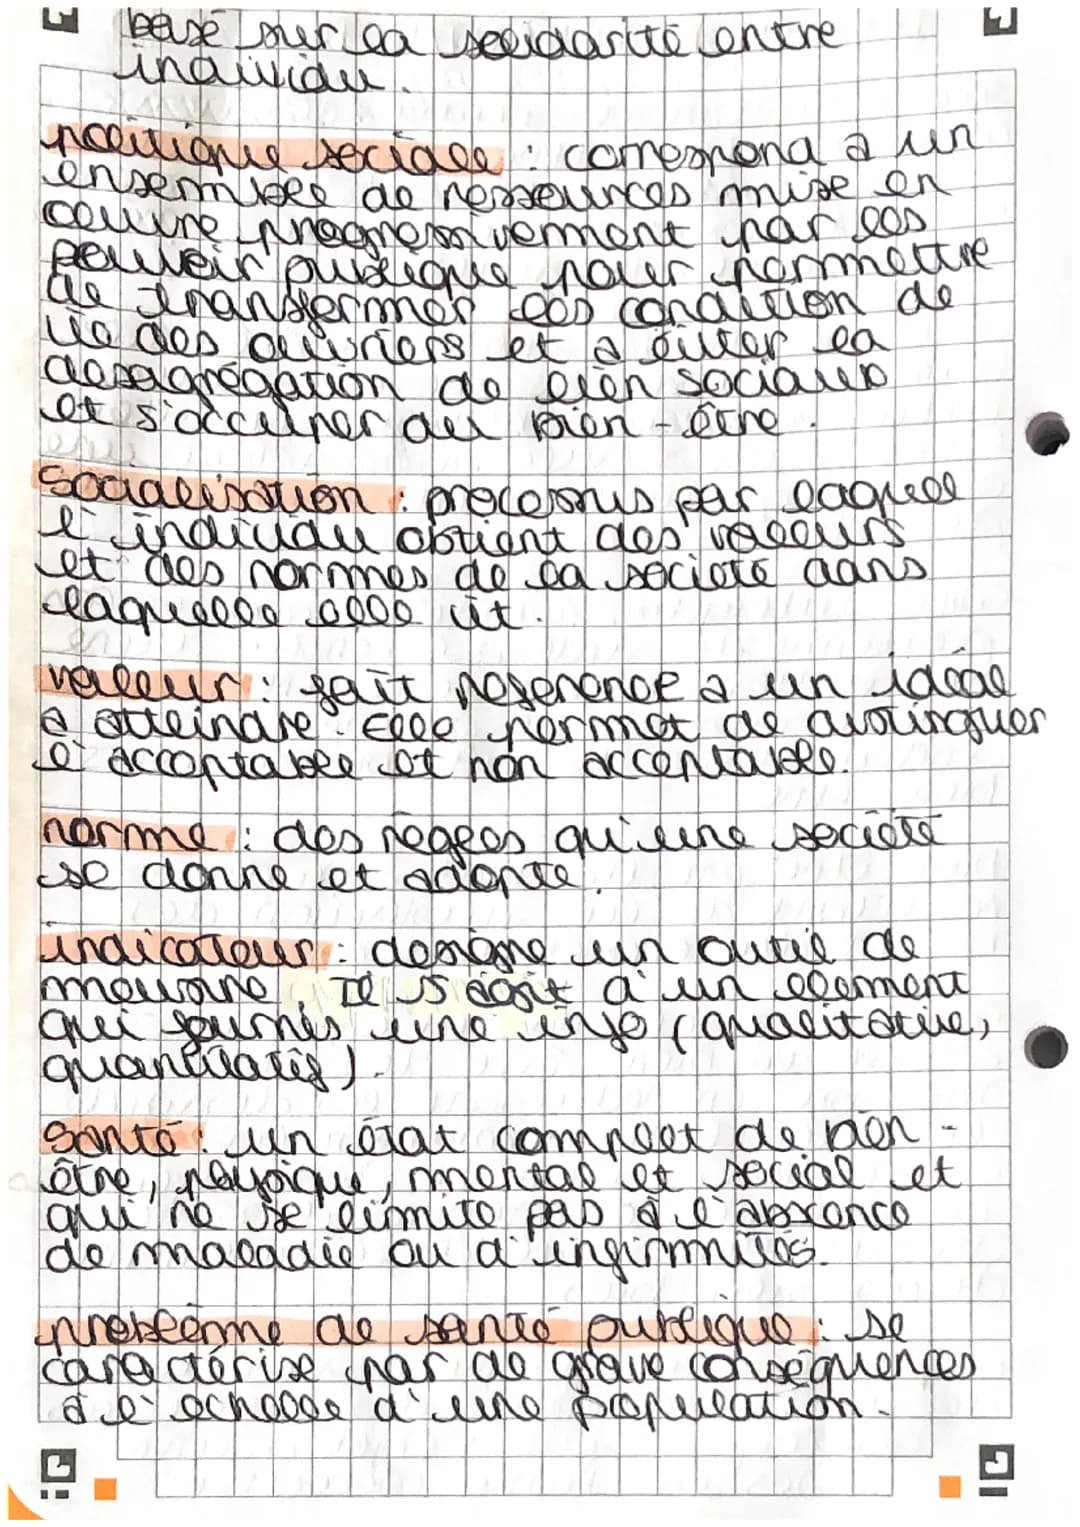 basé sur la solidarité entre
individu.
politique sociale : correspond a un
ensemble de ressources mise en
oeuvre progressivement par les
pouvoir publique pour permettre
de transformer les condition de
vie des ouvriers et a éviter la
desagrégation de lien sociaux
et s'occuper du bien-être.
Socialisation : processus par laquell
l'individu obtient des valeurs
et des normes de la societé dans
laquelle elle vit.
valeur : fait reference a un idéal
a atteindre. Elle permet de distinguer
l'acceptable et non acceptable.
norme : des règles qu'une société
se donne et adopte.
indicateur : designe un outil de
mesure. Il s'agit d'un element
qui fournis une info (qualitative,
quantitatif).
Santé : un état complet de bien-
être, physique, mental et social et
qui ne se limite pas à l'absence
de maladie ou d'infirmités.
problème de santé publique : se
caractérise par de grave conséquences
à l'échelle d'une population.